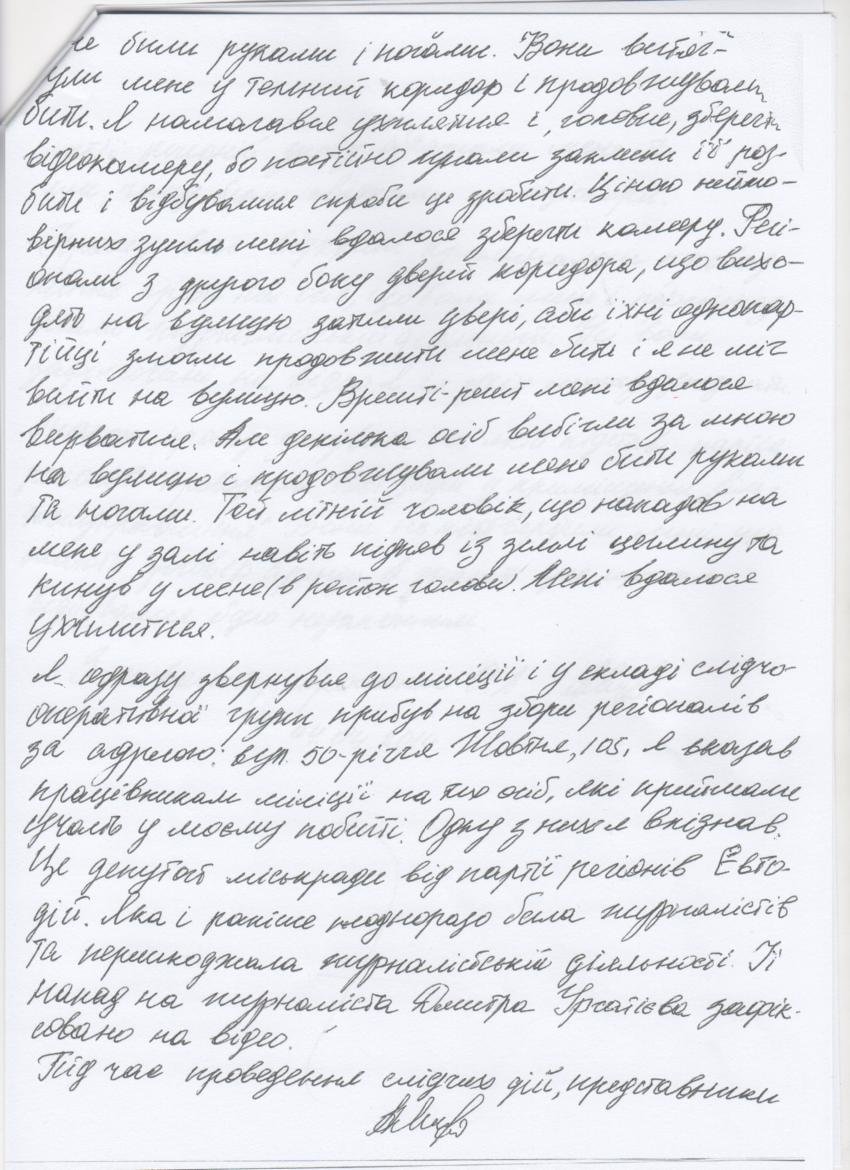 не били руками і ногами. Вони витяг-
ули мене у темний коридор і продовжували
бити. Я намагався ухилятися і, головне, зберегти
відеокамеру, бо постійно лунали заклики її роз-
бити і відбувалися спроби це зробити. Ціною неймо-
вірних зусиль мені вдалося зберегти камеру. Регі-
онали з другого боку дверей коридора, що вихо-
дять на вулицю затисли двері, аби їхні однопар-
тійці змогли продовжити мене бити і я не міг
вийти на вулицю. Врешті-решт мені вдалося
вирватися. Але декілька осіб вибігли за мною
на вулицю і продовжували мене бити руками
та ногами. Той літній чоловік, що нападав на
мене у залі навіть підняв із землі цеглину та
кинув у мене (в район голови). Мені вдалося
ухилитися.
Я одразу звернувся до міліції і у складі слідчо
оперативної групи прибув на збори регіоналів
за адресою: вул. 50-річчя Жовтня, 105. Я вказав
працівникам міліції на тих осіб, які приймали
участь у моєму побитті. Одну з них я впізнав.
Це депутат міськради від партії регіонів Євто-
дій. Яка і раніше неодноразо била журналістів
та перешкоджала журналістській діяльності. Її
напад на журналіста Дмитра зафік-
совано на відео.
Під час проведення слідчих дій, представники